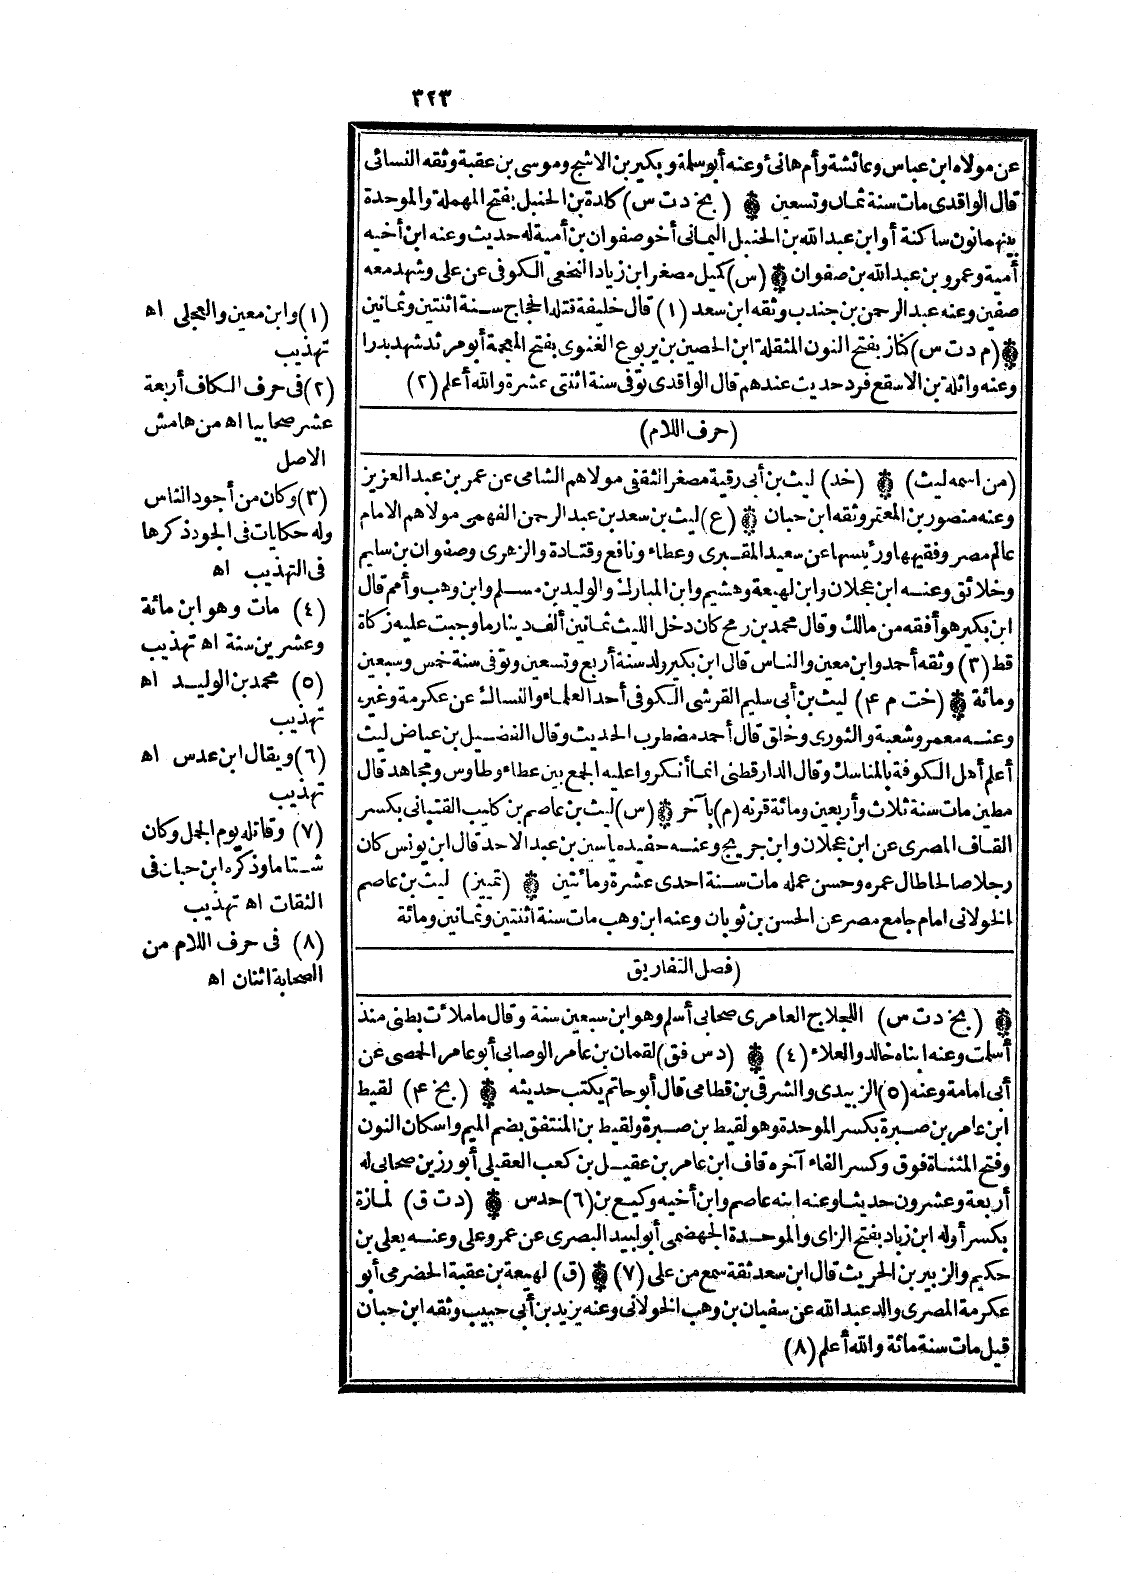 ٣٢٣
عن مولاه ابن عباس وعائشة وأم هانئ وعنه أبو سلمة وبكير بن الاشج وموسى بن عقبة وثقه النسائى
قال الواقدى مات سنة ثمان وتسعين ۞ (بخ د ت س) كلدة بن الحنبل بفتح المهملة والموحدة
بينهما نون ساكنة أو ابن عبد الله بن الحنبل اليمانى أخو صفوان بن أمية له حديث وعنه ابن أخيه
أمية وعمرو بن عبد الله بن صفوان ۞ (س) كميل مصغر ابن زياد النخعى الكوفى عن على وشهد معه
صفين وعنه عبد الرحمن بن جندب وثقه ابن سعد (١) قال خليفة قتله الحجاج سنة اثنتين وثمانين
۞ (م د ت س) كناز بفتح النون المثقلة ابن الحصين بن يربوع الغنوى بفتح المعجمة أبو مرثد شهد بدرا
وعنه واثلة بن الاسقع فرد حديث عندهم قال الواقدى توفى سنة اثنتى عشرة والله أعلم (٢)
(حرف اللام)
(من اسمه ليث) ۞ (خد) ليث بن أبى رقية مصغر الثقفى مولاهم الشامى عن عمر بن عبد العزيز
وعنه منصور بن المعتمر وثقه ابن حبان ۞ (ع) ليث بن سعد بن عبد الرحمن الفهمى مولاهم الامام
عالم مصر وفقيهها ورئيسها عن سعيد المقبرى وعطاء ونافع وقتادة والزهرى وصفوان بن سليم
وخلائق وعنه ابن عجلان وابن لهيعة وهشيم وابن المبارك والوليد بن مسلم وابن وهب وأمم قال
ابن بكير هو أفقه من مالك وقال محمد بن رمح كان دخل الليث ثمانين ألف دينار ما وجبت عليه زكاة
قط (٣) وثقه أحمد وابن معين والناس قال ابن بكير ولد سنة أربع وتسعين وتوفى سنة خمس وسبعين
ومائة ۞ (خت م ٤) ليث بن أبى سليم القرشى الكوفى أحد العلماء والنساك عن عكرمة وغيره
وعنه معمر وشعبة والثورى وخلق قال أحمد مضطرب الحديث وقال الفضيل بن عياض ليث
أعلم أهل الكوفة بالمناسك وقال الدارقطنى انما أنكروا عليه الجمع بين عطاء وطاوس ومجاهد قال
مطين مات سنة ثلاث وأربعين ومائة قرنه (م) بآخر ۞ (س) ليث بن عاصم بن كليب القتبانى بكسر
القاف المصرى عن ابن عجلان وابن جريج وعنه حفيده ياسين بن عبد الاحد قال ابن يونس كان
رجلا صالحا طال عمره وحسن عمله مات سنة احدى عشرة ومائتين ۞ (تمييز) ليث بن عاصم
الخولانى امام جامع مصر عن الحسن بن ثوبان وعنه ابن وهب مات سنة اثنتين وثمانين ومائة
(فصل التفاريق
۞ (بخ د ت س) اللجلاج العامرى صحابى أسلم وهو ابن سبعين سنة وقال ما ملأت بطنى منذ
أسلمت وعنه ابناه خالد والعلاء (٤) ۞ (د س فق) لقمان بن عامر الوصابى أبو عامر الحمصى عن
أبى امامة وعنه (٥) الزبيدى والشرقى بن قطامى قال أبو حاتم يكتب حديثه ۞ (بخ ٤) لقيط
ابن عامر بن صبرة بكسر الموحدة وهو لقيط بن صبرة ولقيط بن المنتفق بضم الميم واسكان النون
وفتح المثناة فوق وكسر الفاء آخره قاف ابن عامر بن عقيل بن كعب العقيلى أبو رزين صحابى له
أربعة وعشرون حديثا وعنه ابنه عاصم وابن أخيه وكيع بن (٦) حدس ۞ (د ت ق) لمازة
بكسر أوله ابن زياد بفتح الزاى والموحدة الجهضمى أبو لبيد البصرى عن عمر وعلى وعنه يعلى بن
حكيم والزبير بن الخريت قال ابن سعد ثقة سمع من على (٧) ۞ (ق) لهيعة بن عقبة الحضرمى أبو
عكرمة المصرى والد عبد الله عن سفيان بن وهب الخولانى وعنه يزيد بن أبى حبيب وثقه ابن حبان
قيل مات سنة مائة والله أعلم (٨)
(١) وابن معين والعجلى اه
تهذيب
(٢) فى حرف الكاف أربعة
عشر صحابيا اه من هامش
الاصل
(٣) وكان من أجود الناس
وله حكايات فى الجود ذكرها
فى التهذيب اه
(٤) مات وهو ابن مائة
وعشرين سنة اه تهذيب
(٥) محمد بن الوليد اه
تهذيب
(٦) ويقال ابن عدس اه
تهذيب
(٧) وقاتله يوم الجمل وكان
شتاما وذكره ابن حبان فى
الثقات اه تهذيب
(٨) فى حرف اللام من
الصحابة اثنان اه